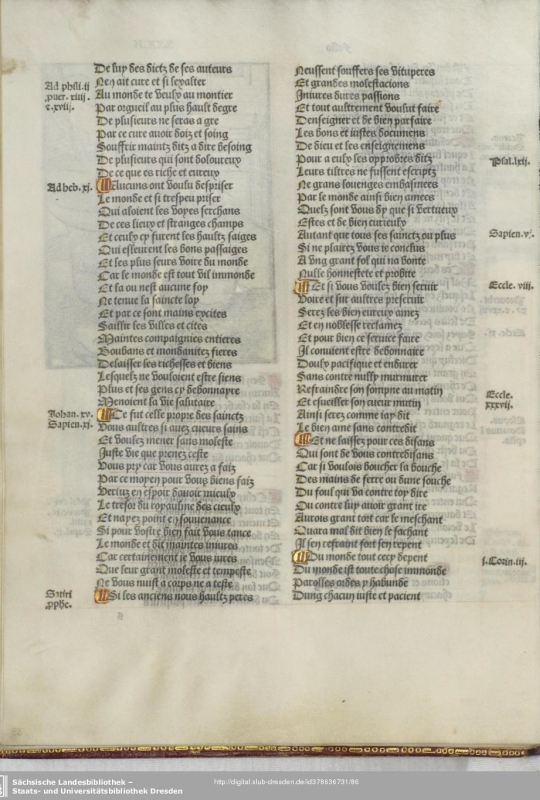 De luy des dictz de ses auteurs
Nen ait cure et si sexalter
Au monde te veulx au montier
Par orgueil au plus hault degre
De plusieurs ne seras a gre
Par ce cure avoir dois et soing
Souffrir maintz ditz a dire besoing
De plusieurs qui sont doloureux
De ce que es riche et eureux
Aucuns ont voulu despriser
Le monde et si trespeu priser
Qui aloient les voyes serchans
De ces lieux et stranges champs
Et ceulx cy furent les haultz saiges
Qui esleurent les bons passaiges
Et les plus seurs voire du monde
Car le monde est tout vil immonde
Et sa ou nest aucune foy
Ne tenue la saincte loy
Et par ce sont mains excites
Saillir les villes et cites
Maintes compaignies entieres
Boubans et mondanitez fieres
Delaisser les richesses et biens
Lesquelz ne vouloient estre siens
Plus et ses gens cy debonnayre
Menoient la vie salutaire
Ce fut celle propre des sainctz
Vous aultres si avez cueurs sains
Et voulez mener sans moleste
Juste vie que prenez ceste
Vous pry car vous aurez a faiz
Par ce moyen pour vous biens faiz
Vertuz en espoir davoir mieulx
Le tresor du royaulme des cieulx
Et nayez point en souvenance
Si pour vostre bien fait vous tance
Le monde et dit maintes iniures
Car certainement ie vous iures
Que leur grant moleste et tempeste
Ne vous nuist a corps ne a teste
Si les anciens nous haultz peres
Ad phili.ij
puer. xiiij.
z.xvij.
Ad heb. xj.
Johan. xv.
Sapien.xj.
Satiri
pphe.
Neussent souffers ses vituperes
Et grandes molestacions
Iniures dures passions
Et tout aultrement voulut faire
Denseigner et de bien parfaire
Les bons et iustes documens
De dieu et les enseignemens
Pour a eulx les opprobres ditz
Leurs tiltres ne fussent escriptz
Ne grans louenges embasmees
Par le monde ainsi bien amees
Quelz sont vous dy que si vertueux
Estes et de bien curieulx
Autant que tous ses sainctz ou plus
Si ne plairez vous ie conclus
A ung grant fol qui na bonte
Nulle honnestete et probite
Et si vous voulez bien servir
Voire et fut aultres preservir
Serez les bien eureux amez
Et en noblesse reclamez
Et pour bien ce service faire
Il convient estre debonnaire
Doulx pacifique et endurer
Sans contre nulluy murmurer
Refraindre son sompne au matin
Et esueiller son cueur mutin
Ainsi serez comme iay dit
Le bien ame sans contredit
Et ne laissez pour ces disans
Qui sont de vous contredisans
Car si voulois boucher la bouche
Des mains de ferre ou dune souche
Du foul qui va contre toy dire
Ou contre luy avoir grant ire
Aurois grant tort car le meschant
Quant mal dit bien le sachant
Il sen refraint fort sen repent
Du monde tout cecy depent
Du monde ist toute chose immonde
Parolles ordes y habunde
Dung chacun iuste et pacient
Psal.lxij.
Sapien.v.
Eccle. viij.
Eccle.
xxxvij.
j.Corin.iij.
Sächsische Landesbibliothek –
Staats- und Universitätsbibliothek Dresden
http://digital.slub-dresden.de/id378636731/86